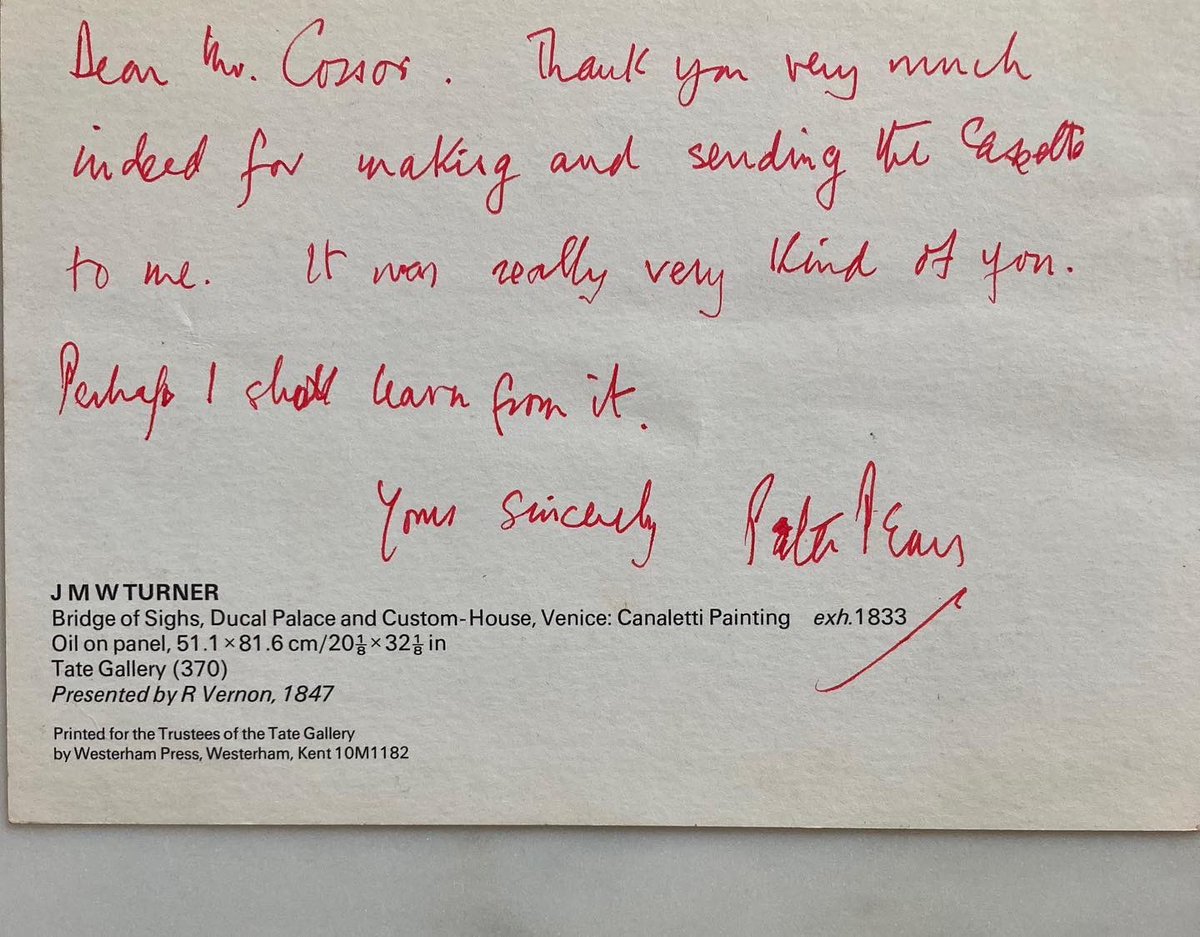 Dear Mr. Cossor. Thank you very much
indeed for making and sending the Cassette
to me. It was really very kind of you.
Perhaps I shall learn from it.
Yours sincerely Peter Pears
J M W TURNER
Bridge of Sighs, Ducal Palace and Custom-House, Venice: Canaletti Painting exh.1833
Oil on panel, 51.1×81.6 cm/20⅛×32⅛ in
Tate Gallery (370)
Presented by R Vernon, 1847
Printed for the Trustees of the Tate Gallery
by Westerham Press, Westerham, Kent 10M1182